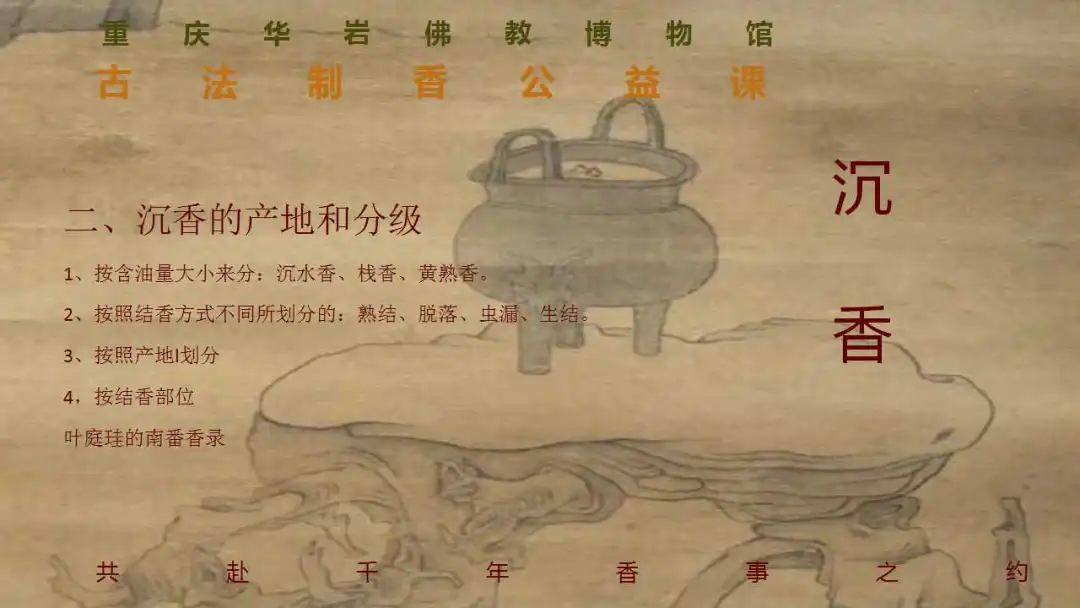 重庆华岩佛教博物馆
古法制香公益课
沉香
二、沉香的产地和分级
1、按含油量大小来分：沉水香、栈香、黄熟香。
2、按照结香方式不同所划分的：熟结、脱落、虫漏、生结。
3、按照产地l划分
4，按结香部位
叶庭珪的南番香录
共赴千年香事之约